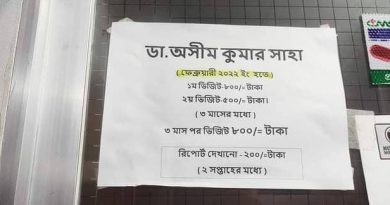 ডা.অসীম কুমার সাহা
( ফেব্রুয়ারী ২০২২ ইং হতে )
১ম ভিজিট-৮০০/=টাকা
২য় ভিজিট-৫০০/=টাকা।
( ৩ মাসের মধ্যে )
৩ মাস পর ভিজিট ৮০০/= টাকা
রিপোর্ট দেখানো - ২০০/=টাকা
( ২ সপ্তাহের মধ্যে )